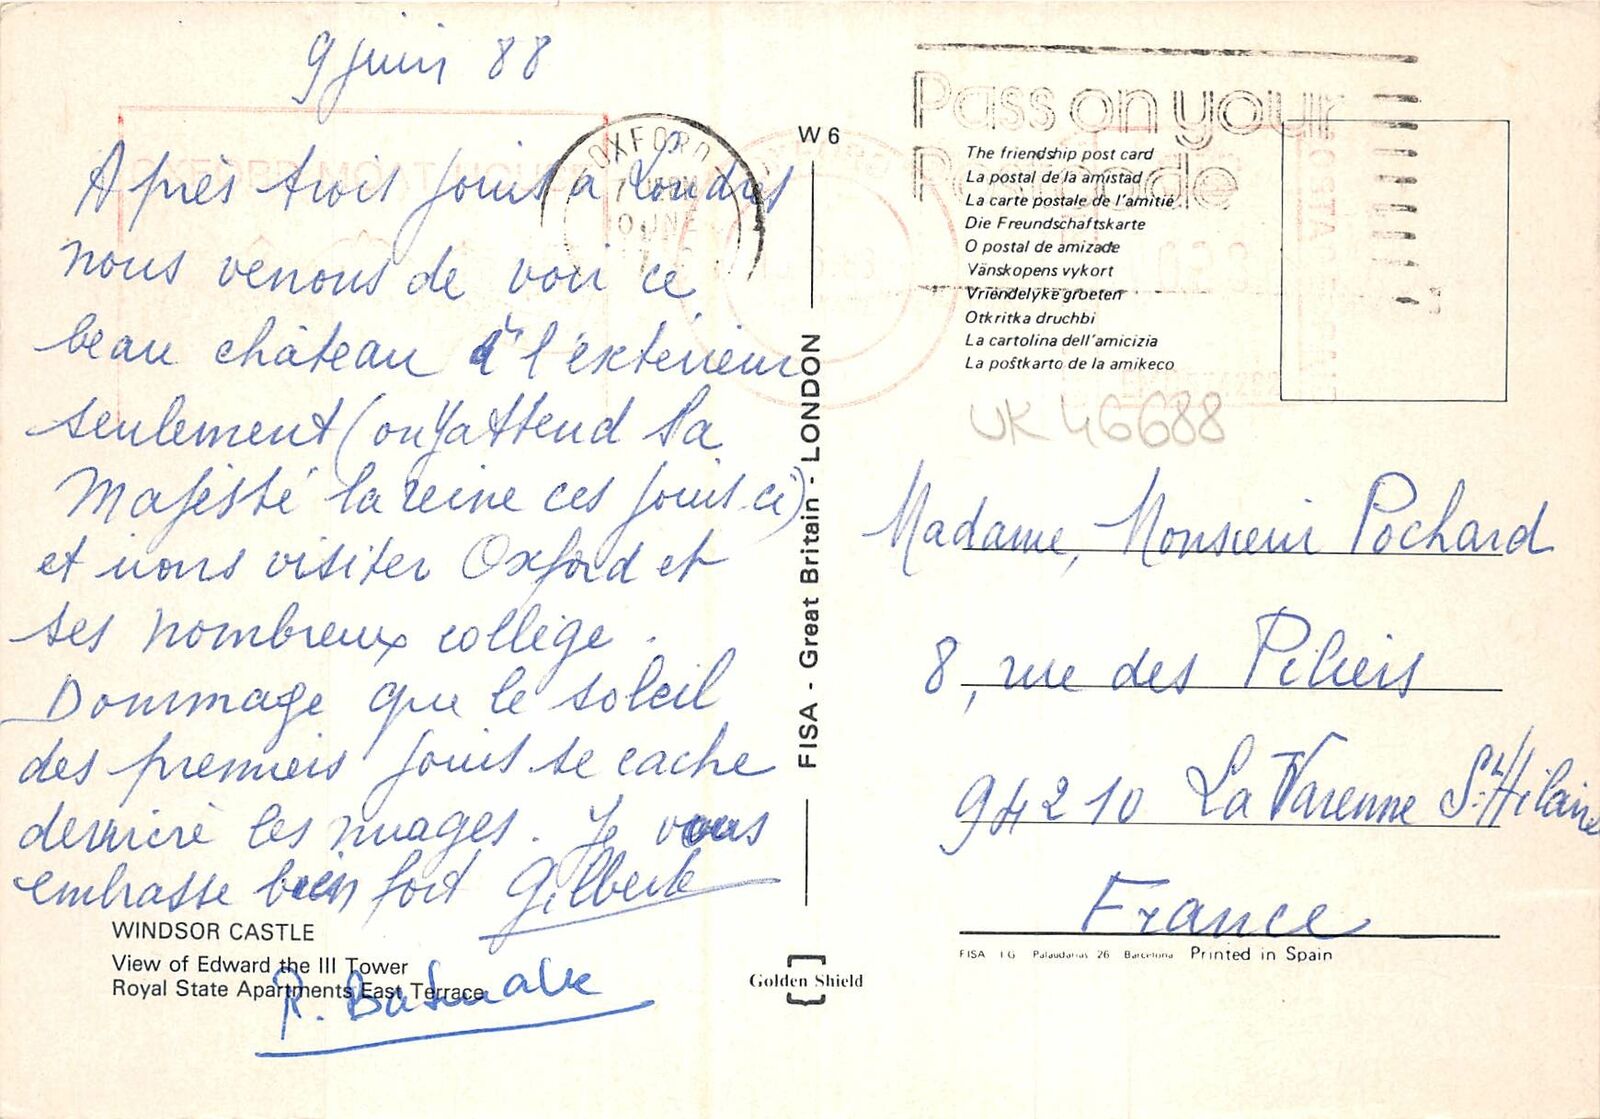 9 juin 88
Après trois jours à Londres
nous venons de voir ce
beau château à l'extérieur
seulement (on y attend Sa
Majesté la reine ces jours-ci)
et irons visiter Oxford et
ses nombreux collège.
Dommage que le soleil
des premiers jours se cache
derrière les nuages. Je vous
embrasse bien fort Gilberte
WINDSOR CASTLE
View of Edward the III Tower
Royal State Apartments East Terrace
OXFORD
JNE
W 6
FISA - Great Britain - LONDON
Golden Shield
Pass on your
Postcode
The friendship post card
La postal de la amistad
La carte postale de l'amitié
Die Freundschaftskarte
O postal de amizade
Vänskopens vykort
Vriendelyke groeten
Otkritka druchbi
La cartolina dell'amicizia
La poŝtkarto de la amikeco
UK 46688
Madame, Monsieur Pochard
8, rue des Piliers
94210 La Varenne St-Hilaire
France
FISA I G Palaudarias 26 Barcelona Printed in Spain